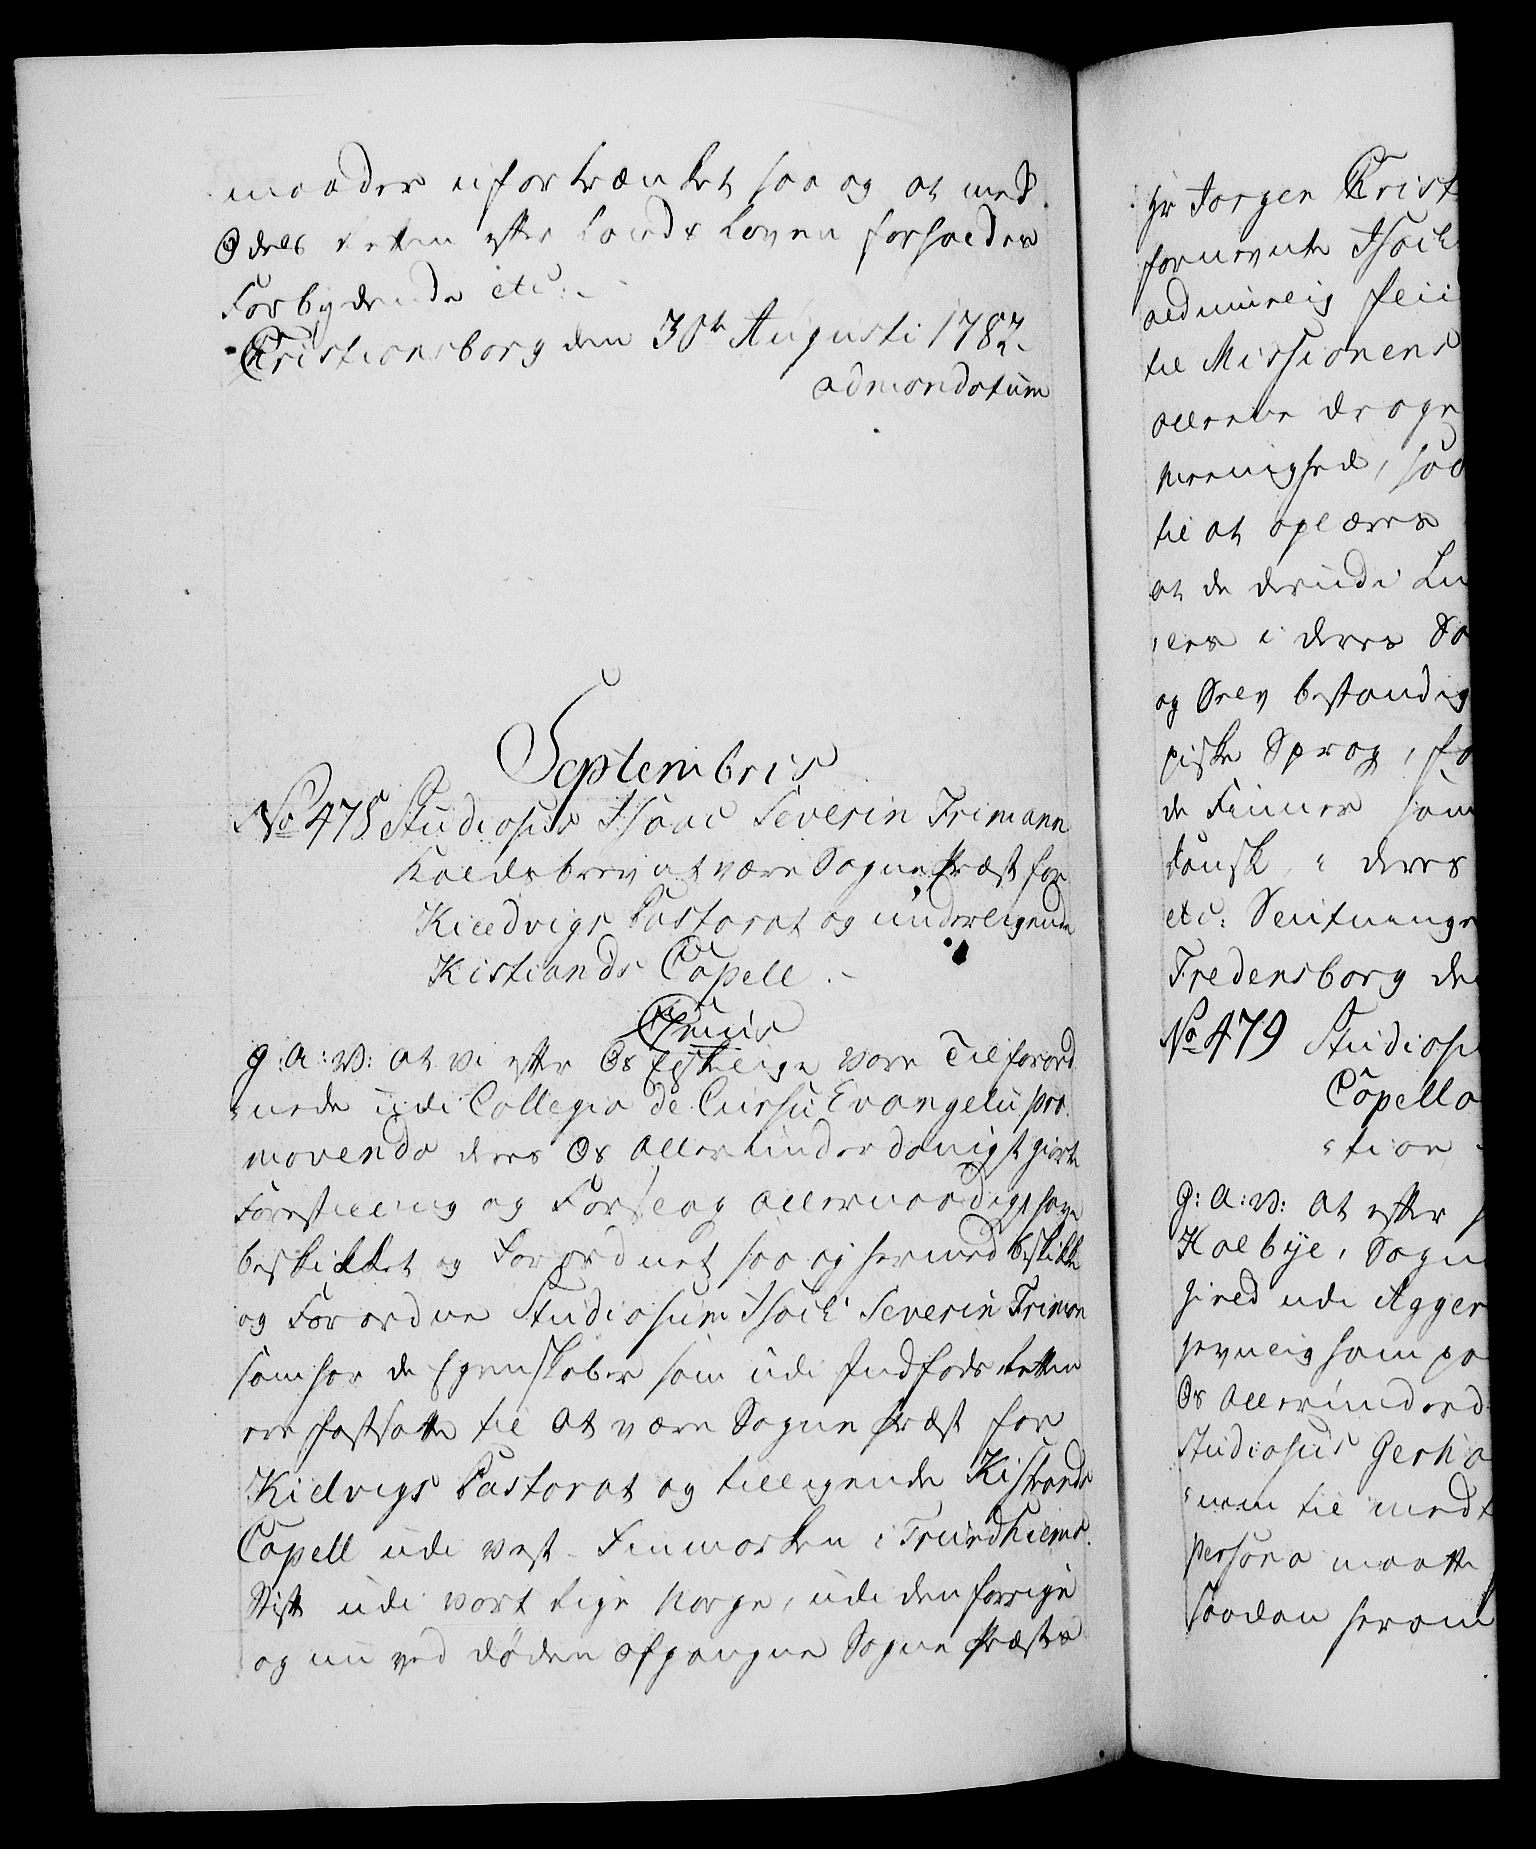 maader ufortrænket saa og at med
Odels retten efter Lands Loven forholder
Forbydende etc:
Christiansborg den 30te Augusti 1782.
admandatum
Septembris
No 478 Studiosus Isaac Severin Trimann
Kaldsbrev at være Sogne Præst for
Kieldvigs Pastorat og underligende
Kistrands Capell.
Chr: 7mus
G: A: V: at Vi efter Os Elskelige vore Tilforord
nede udi Collegio de Cursu Evangelii pro
movendo deres Os allerunderdanigst giorte
Forestilling og Forslag allernaadigst have
beskikket og Forordnet saa og hermed beskikke
og Forordne Studiosum Isach Severin Triman
som har de Egenskaber som udi Indføds Retten
ere fastsatte til at være Sogne Præst for
Kielvigs Pastorat og tilligende Kistrands
Capell udi Vest-Finmarken i Trundhiems
Stift udi vort Rige Norge, udi den forrige
og nu ved døden afgangne Sogne Præstes
Hr Jørgen Krist
fornevnte Isach
aldmuelig flii
til Missionens
allene drage
meenighed, saa
til at oplæres
at de derudi Lu
i deres Sø
og Selv bestandig
piske Sprog, fo
de Finner som
dansk, i deres
etc: Slutninge
Fredensborg de
No 479 Studiosu
Capella
tion
G: A: V: at efter
Holbye, Sogn
Gield udi Agger
hevnlig som pa
Os allerunderd
Studiosus Gerha
nem til medt
Persona maatte
Saadan herom